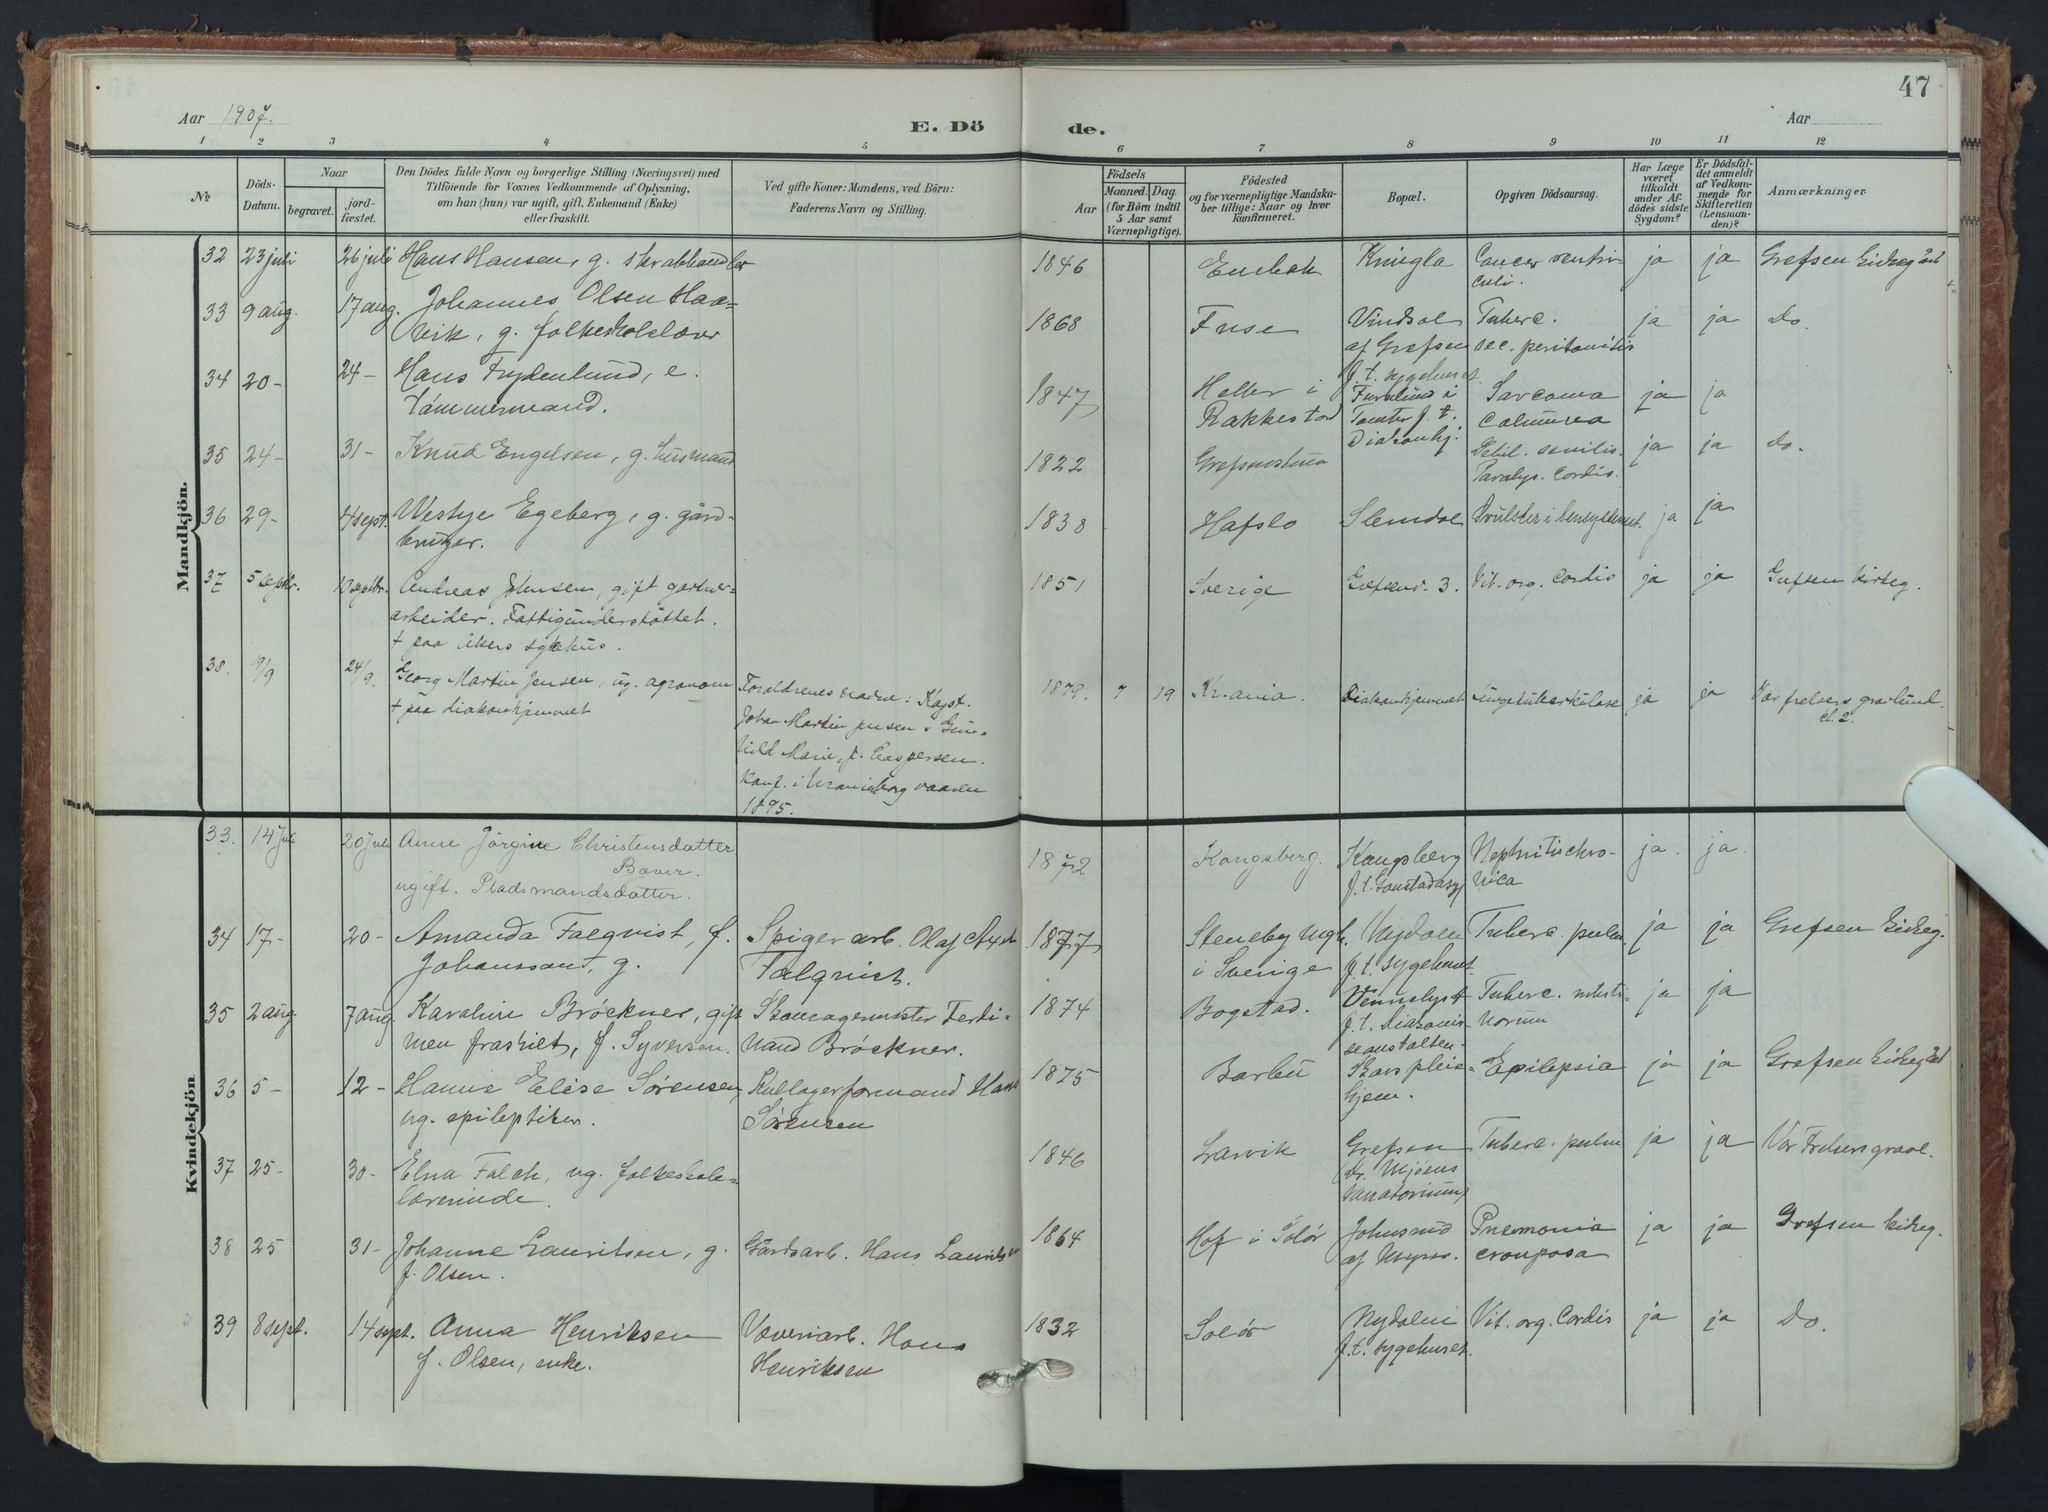 47
Aar 1907.
E. Döde.
Aar
1 2 3 4 5 6 7 8 9 10 11 12
No.
Döds-Datum.
Naar
begravet.
jord-fæstet.
Den Dödes fulde Navn og borgerlige Stilling (Næringsvei) med
Tilföiende for Voxnes Vedkommende af Oplysning,
om han (hun) var ugift, gift, Enkemand (Enke)
eller fraskilt.
Ved gifte Koner: Mandens, ved Börn:
Faderens Navn og Stilling.
Födsels
Aar
Maaned. Dag.
(for Börn indtil
5 Aar samt
Værnepligtige).
Födested
og for værnepligtige Mandska-
ber tillige: Naar og hvor
konfirmeret.
Bopæl.
Opgiven Dödsaarsag.
Har Læge
været
tilkaldt
under Af-
dödes sidste
Sygdom?
Er Dödsfal-
det anmeldt
af Vedkom-
mende for
Skifteretten
(Lensman-
den)?
Anmærkninger
Mandkjön.
32 23 juli 26 juli Hans Hansen, g. skrabhandler 1846 Enebak Kringla Cancer ventri- ja ja Grefsen kirkegård
culi.
33 9 aug. 17 aug. Johannes Olsen Haa= 1868 Fuse Vindsol Tuberc. ja ja Do.
vik, g. folkeskolelærer af Grefsen sec. peritonitis
f. t. sygehuset
34 20- 24- Hans Frydenlund, e. 1847 Heller i Furulund i Sarcoma ja ja
Tømmermand. Rakkestad Tomter f. t. Columna
Diakonhj.
35 24- 31- Knud Engelsen, g. husmand 1822 Grefsenstuen Debil. senilis ja ja Do.
Paralys. Cordis.
36 29- 4 sept. Westye Egeberg, g. gård- 1838 Hafslo Slemdal Svulster i bensystemet. ja ja
bruger.
37 5 septbr. 12 septbr. Andreas Johnsen, gift gartner- 1851 Sverige Grefsenv. 3. Vit. org. Cordis ja ja Grefsen kirkeg.
arbeider. Fattigunderstøttet.
+ paa Akers sykehus.
38. 19/9 24/9. Georg Martin Jensen, ug. agronom Forældrenes navn: Kapt. 1879. 7 19 Kr.ania. Diakonhjemmet Lungetuberkulose ja ja Vor frelsers gravlund.
+ paa diakonhjemmet Johan Martin Jensen & Gun- cl. 2.
hild Marie, f. Caspersen.
Konf. i Uranienborg vaaren
1895.
Kvindekjön
33. 14 juli 20 juli Anne Jörgine Christensdatter 1872 Kongsberg. Kongsberg Nephritis chro- ja. ja.
Bæver. f. t. Gaustadasyl nica
ugift. Pladsmandsdatter.
34 17- 20- Amanda Falqvist, f. Spigerarb. Olaf Axel 1877 Steneby Nydalen Tuberc. pulm. ja ja Grefsen kirkeg.
Johansson, g. Falqvist. i Sverige f. t. sygehuset.
35 2 aug. 7 aug. Karoline Bröckner, gift Skomagermester Ferdi- 1874 Bogstad. Vennelyst Tuberc. intesti- ja ja
men fraskilt, f. Syversen. nand Bröckner. f. t. Diakonis- norum
seanstalten.
36 5- 12- Hanna Elise Sørensen, Kullagerformand Hans 1875 Barbu pleie- Epilepsia ja ja Grefsen kirkegård
ug. epileptiker. Sørensen hjem.
37 25- 30- Elna Falch, ug. folkeskole= 1846 Larvik Grefsen Tuberc. pulm ja ja Vor Frelsers gravl.
lærerinde. (Dr. Mjøens
Sanatorium)
38 25 31- Johanne Lauritsen, g. Gårdsarb. Hans Lauritsen 1864 Hof i Solør Johnsrud Pnemonia ja ja Grefsen kirkeg.
f. Olsen. af crouposa
39 8 sept. 14 sept. Anna Henriksen Væveriarb. Hans 1832 Solør Nydalen Vit. org. Cordis ja ja Do.
f. Olsen, enke. Henriksen f. t. sygehuset.